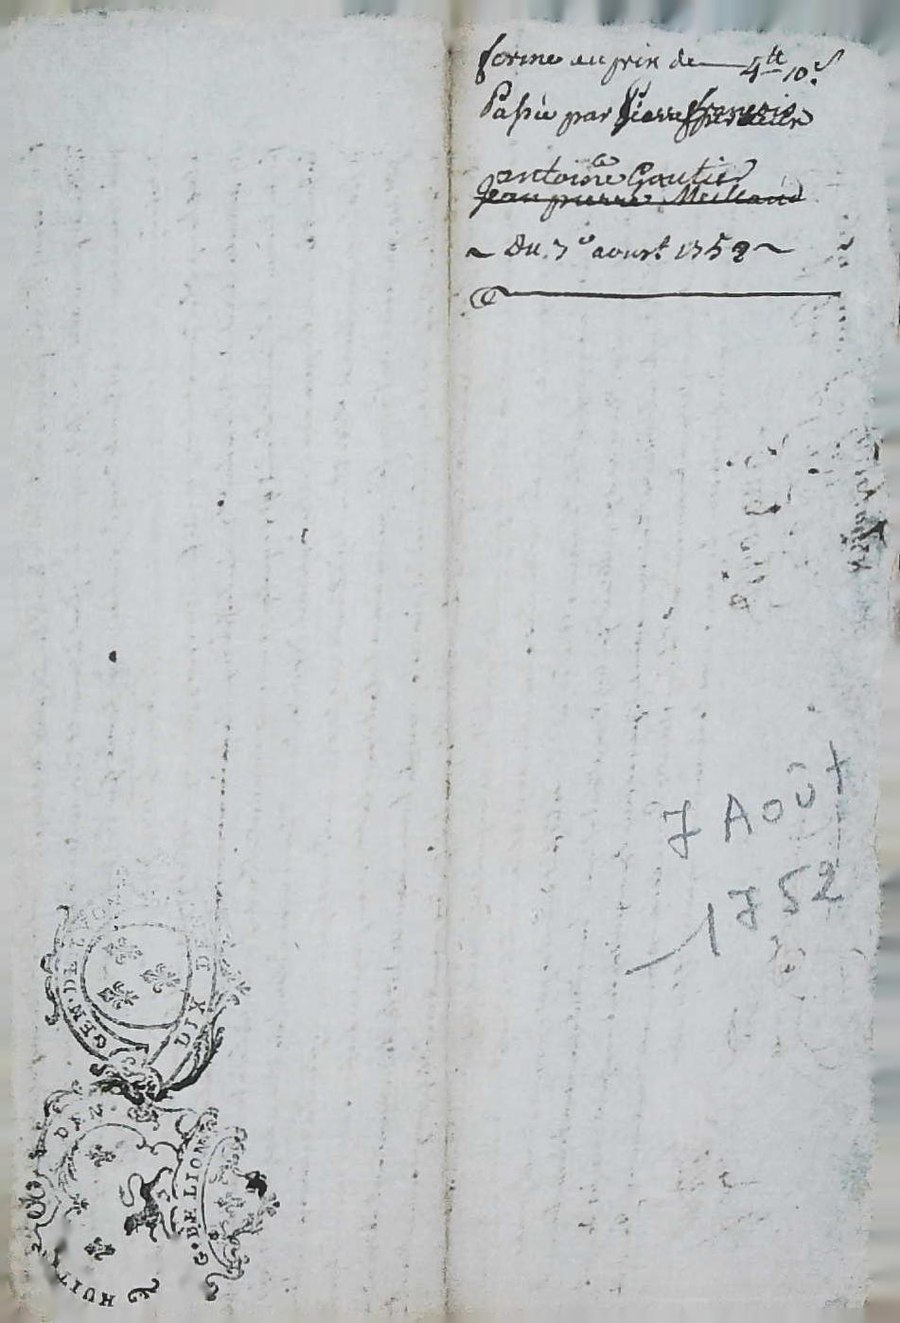 ferme au prix de — 4tt 10s
Passée par Pierre françois
antoine Gautier
Jean pierre Meilland
~ Du 7e aoust 1752 ~
7 Août
1752
GEN. DE LYON
DIX DE
DAN.
G. DE LION
HUIT